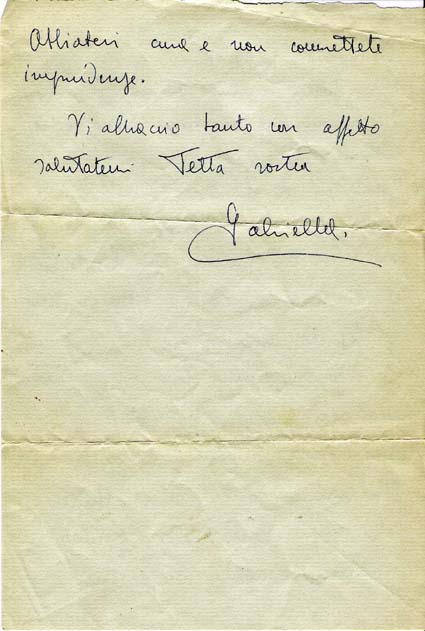 Abbiatevi cura e non commettete
imprudenze.
Vi abbraccio tanto con affetto
salutatemi Tetta vostra
Gabriella.